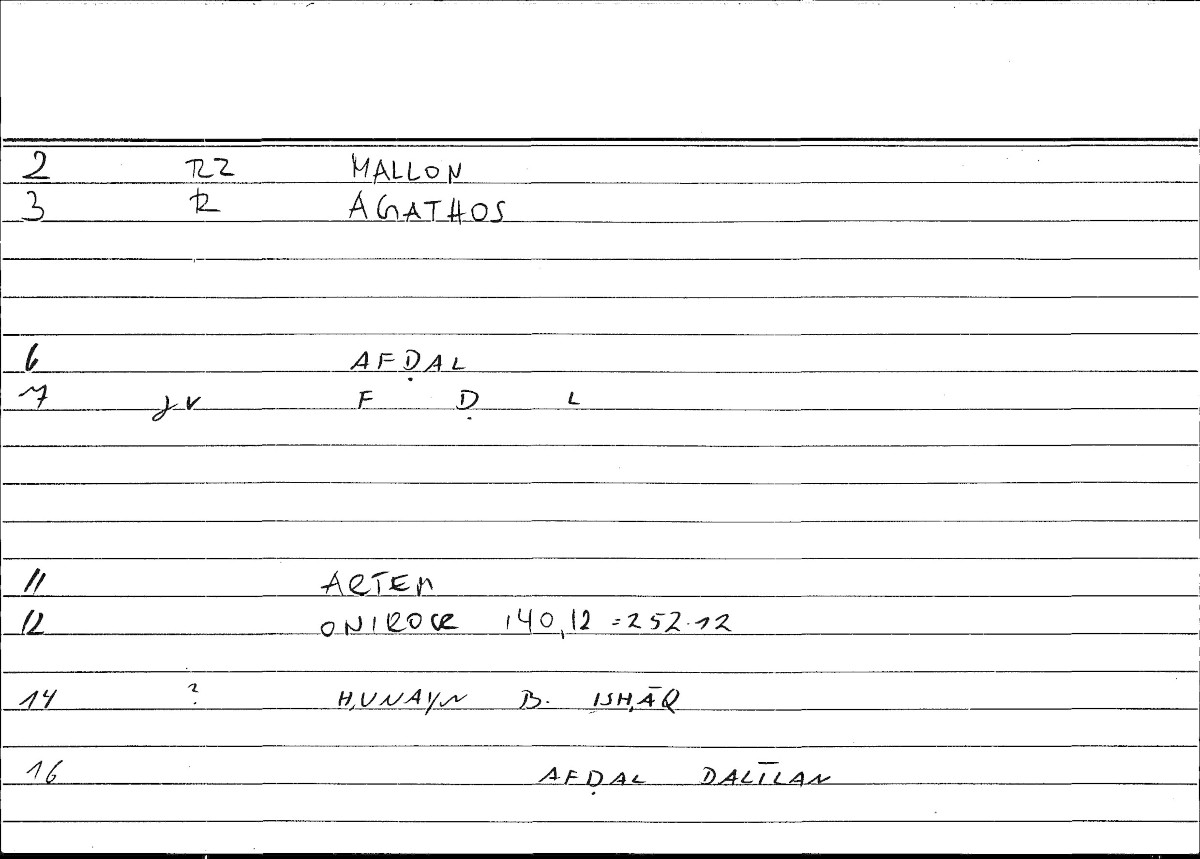 2 RZ MALLON
3 R AGATHOS
6 AFḌAL
7 JV F Ḍ L
11 ARTEM
12 ONIROCR 140,12 = 252.12
14 ? ḤUNAYN B. ISḤĀQ
16 AFḌAL DALĪLAN